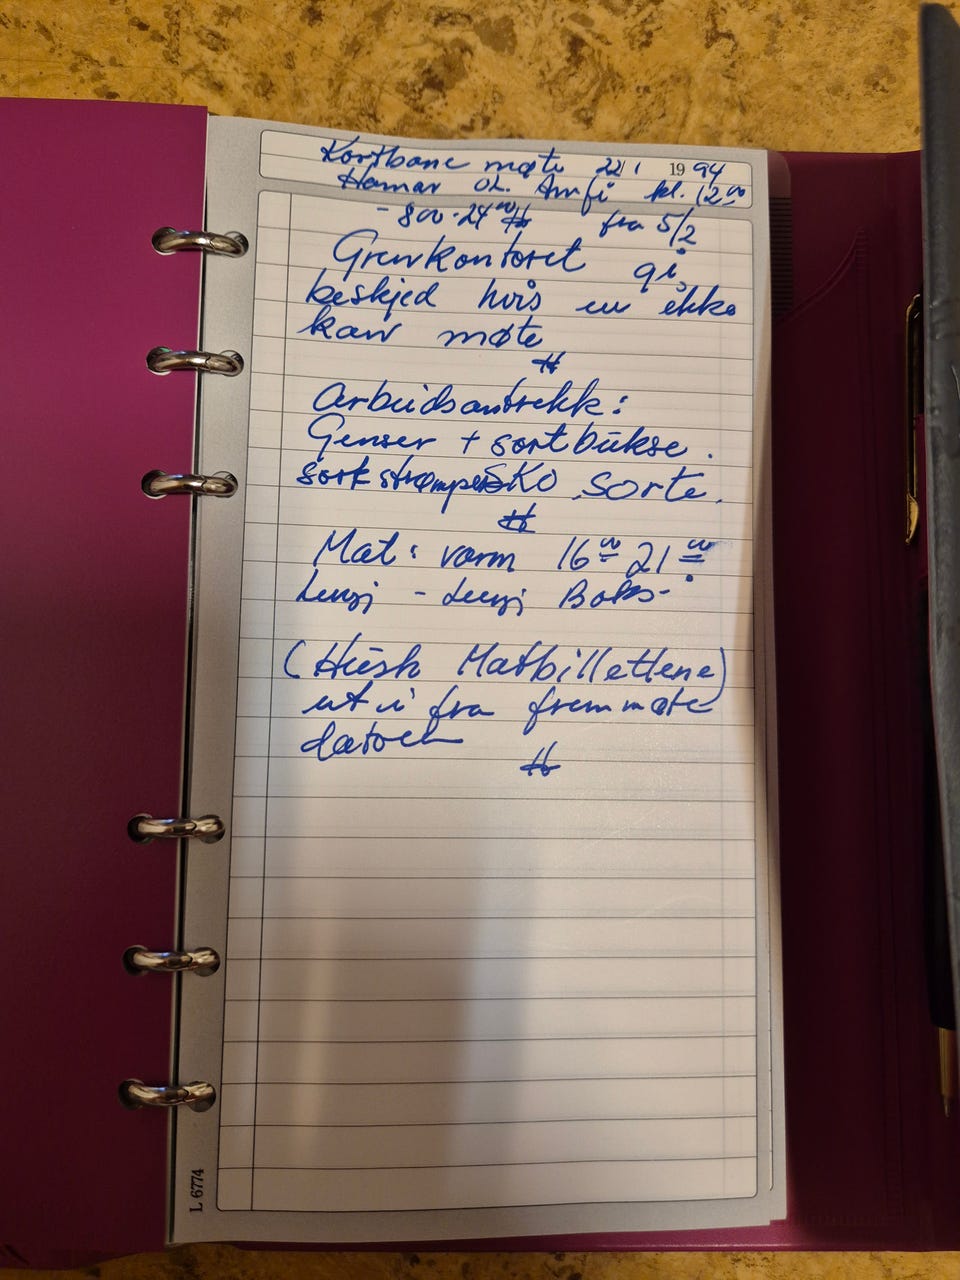 Kortbane møte 22/1 1994
Hamar OL. Amfi kl. 12⁰⁰
- 8⁰⁰-24⁰⁰ fra 5/2
Grenkontoret gi,
beskjed hvis en ikke
kan møte
Arbeidsantrekk:
Genser + sort bukse.
sort strømper SKO sorte.
Mat: varm 16⁰⁰ 21⁰⁰
Lunsj - Lunsj Boks-
(Husk Matbillettene)
ut i fra fremmøte
datoen
L 6774